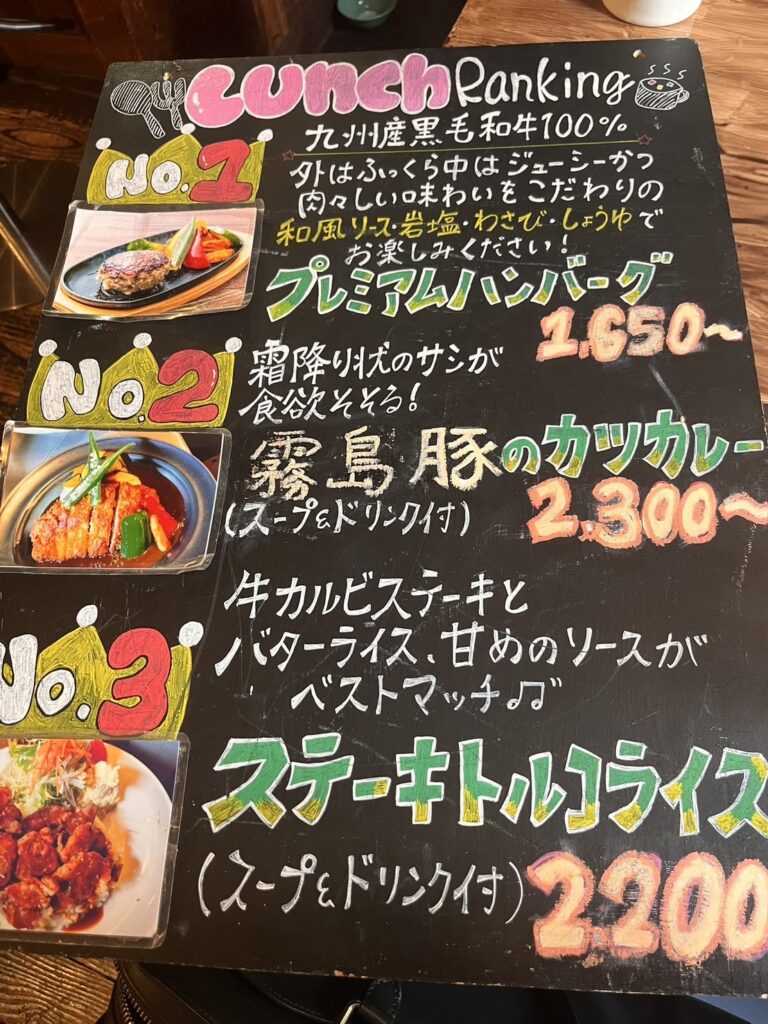 Lunch Ranking
九州産黒毛和牛100%
No.1
外はふっくら中はジューシーかつ
肉々しい味わいをこだわりの
和風ソース・岩塩・わさび・しょうゆで
お楽しみください!
プレミアムハンバーグ
1,650~
No.2
霜降り状のサシが
食欲そそる!
霧島豚のカツカレー
(スープ&ドリンク付)
2,300~
No.3
牛カルビステーキと
バターライス、甘めのソースが
ベストマッチ♫
ステーキトルコライス
(スープ&ドリンク付)
2,200